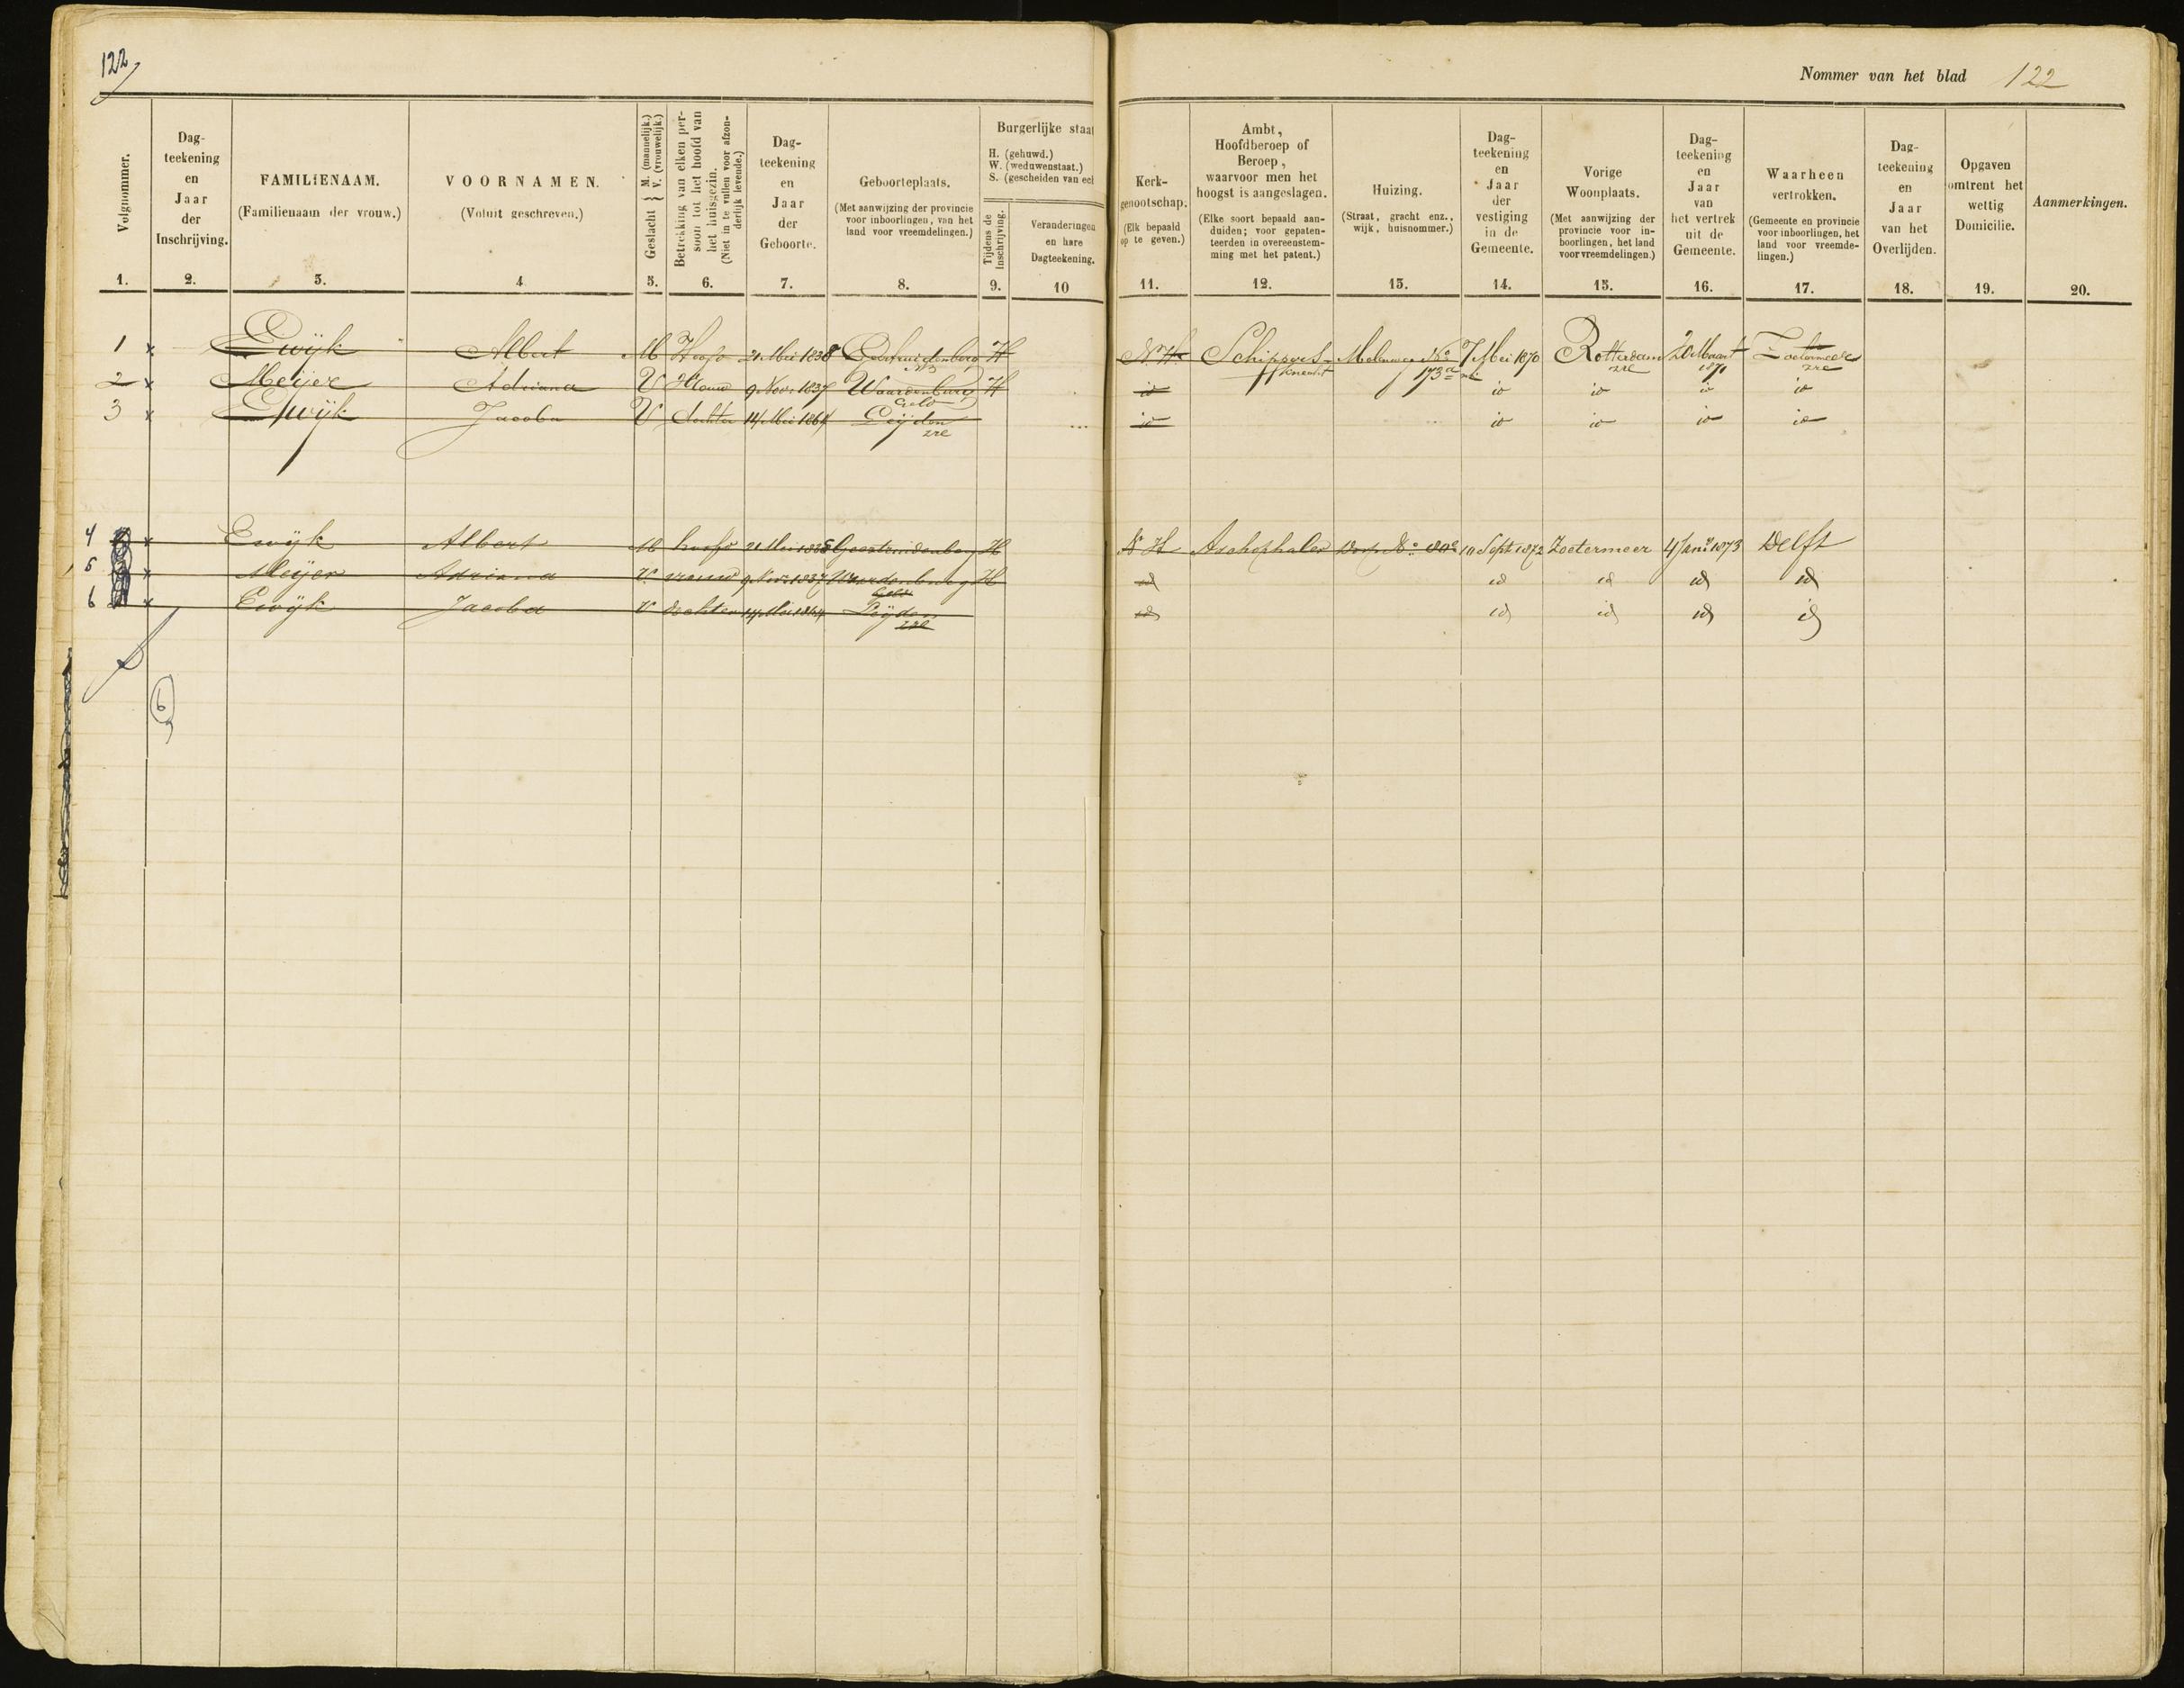 122
Nommer van het blad 122
Volgnommer.
Dag-
teekening
en
Jaar
der
Inschrijving.
FAMILIENAAM.
(Familienaam der vrouw.)
VOORNAMEN.
(Voluit geschreven.)
Geslacht } M. (mannelijk.) V. (vrouwelijk.)
Betrekking van elken per-
soon tot het hoofd van
het huisgezin.
(Niet in te vullen voor afzon-
derlijk levende.)
Dag-
teekening
en
Jaar
der
Geboorte.
Geboorteplaats.
(Met aanwijzing der provincie
voor inboorlingen, van het
land voor vreemdelingen.)
Burgerlijke staat
H. (gehuwd.)
W. (weduwenstaat.)
S. (gescheiden van ech
Tijdens de
Inschrijving.
Veranderingen
en hare
Dagteekening.
Kerk-
genootschap.
(Elk bepaald
op te geven.)
Ambt,
Hoofdberoep of
Beroep,
waarvoor men het
hoogst is aangeslagen.
(Elke soort bepaald aan-
duiden; voor gepaten-
teerden in overeenstem-
ming met het patent.)
Huizing.
(Straat, gracht enz.,
wijk, huisnommer.)
Dag-
teekening
en
Jaar
der
vestiging
in de
Gemeente.
Vorige
Woonplaats.
(Met aanwijzing der
provincie voor in-
boorlingen, het land
voor vreemdelingen.)
Dag-
teekening
en
Jaar
van
het vertrek
uit de
Gemeente.
Waarheen
vertrokken.
(Gemeente en provincie
voor inboorlingen, het
land voor vreemde-
lingen.)
Dag-
teekening
en
Jaar
van het
Overlijden.
Opgaven
omtrent het
wettig
Domicilie.
Aanmerkingen.
1. 2. 3. 4 5. 6. 7. 8. 9. 10 11. 12. 13. 14. 15. 16. 17. 18. 19. 20.
1 x Ewijk Albert M Hoofd 21 Mei 1838 H N.H. Schippers- No 7 Mei 1870 Rotterdam 20 Maart Zoetermeer
NB knecht 173a zre 1871 zre
2 x Meijer Adriana V Vrouw 9 Nov. 1837 Waardenburg H id id id id id
Geld
3 x Ewijk Jacoba V dochter 14 Mei 1864 Leijden id id id id id
zre
4 x Ewijk Albert M hoofd 21 Mei 1838 H N H Aschophaler Dorp No 10 Sept 1872 Zoetermeer 4 Jan. 1873 Delft
5 x Meijer Adriana V vrouw 9 Nov. 1837 Waardenburg H id id id id id
Geld
6 x Ewijk Jacoba V dochter 14 Mei 1864 Leijden id id id id id
zre
6